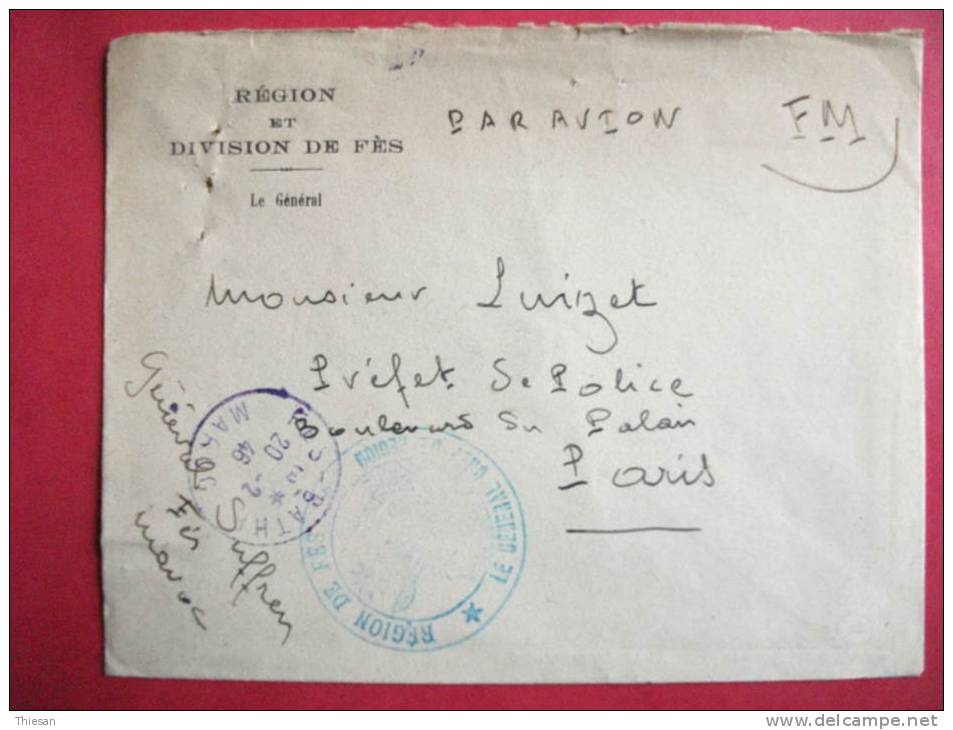 RÉGION
ET
DIVISION DE FÈS
Le Général
PAR AVION
FM
Monsieur Luizet
Préfet de Police
Boulevard du Palais
Paris
Général Suffren
Fès
Maroc
BATHA
MAROC
20
2
46
RÉGION DE FES
LE GENERAL CHEF DE REGION
Thiesan
www.delcampe.net